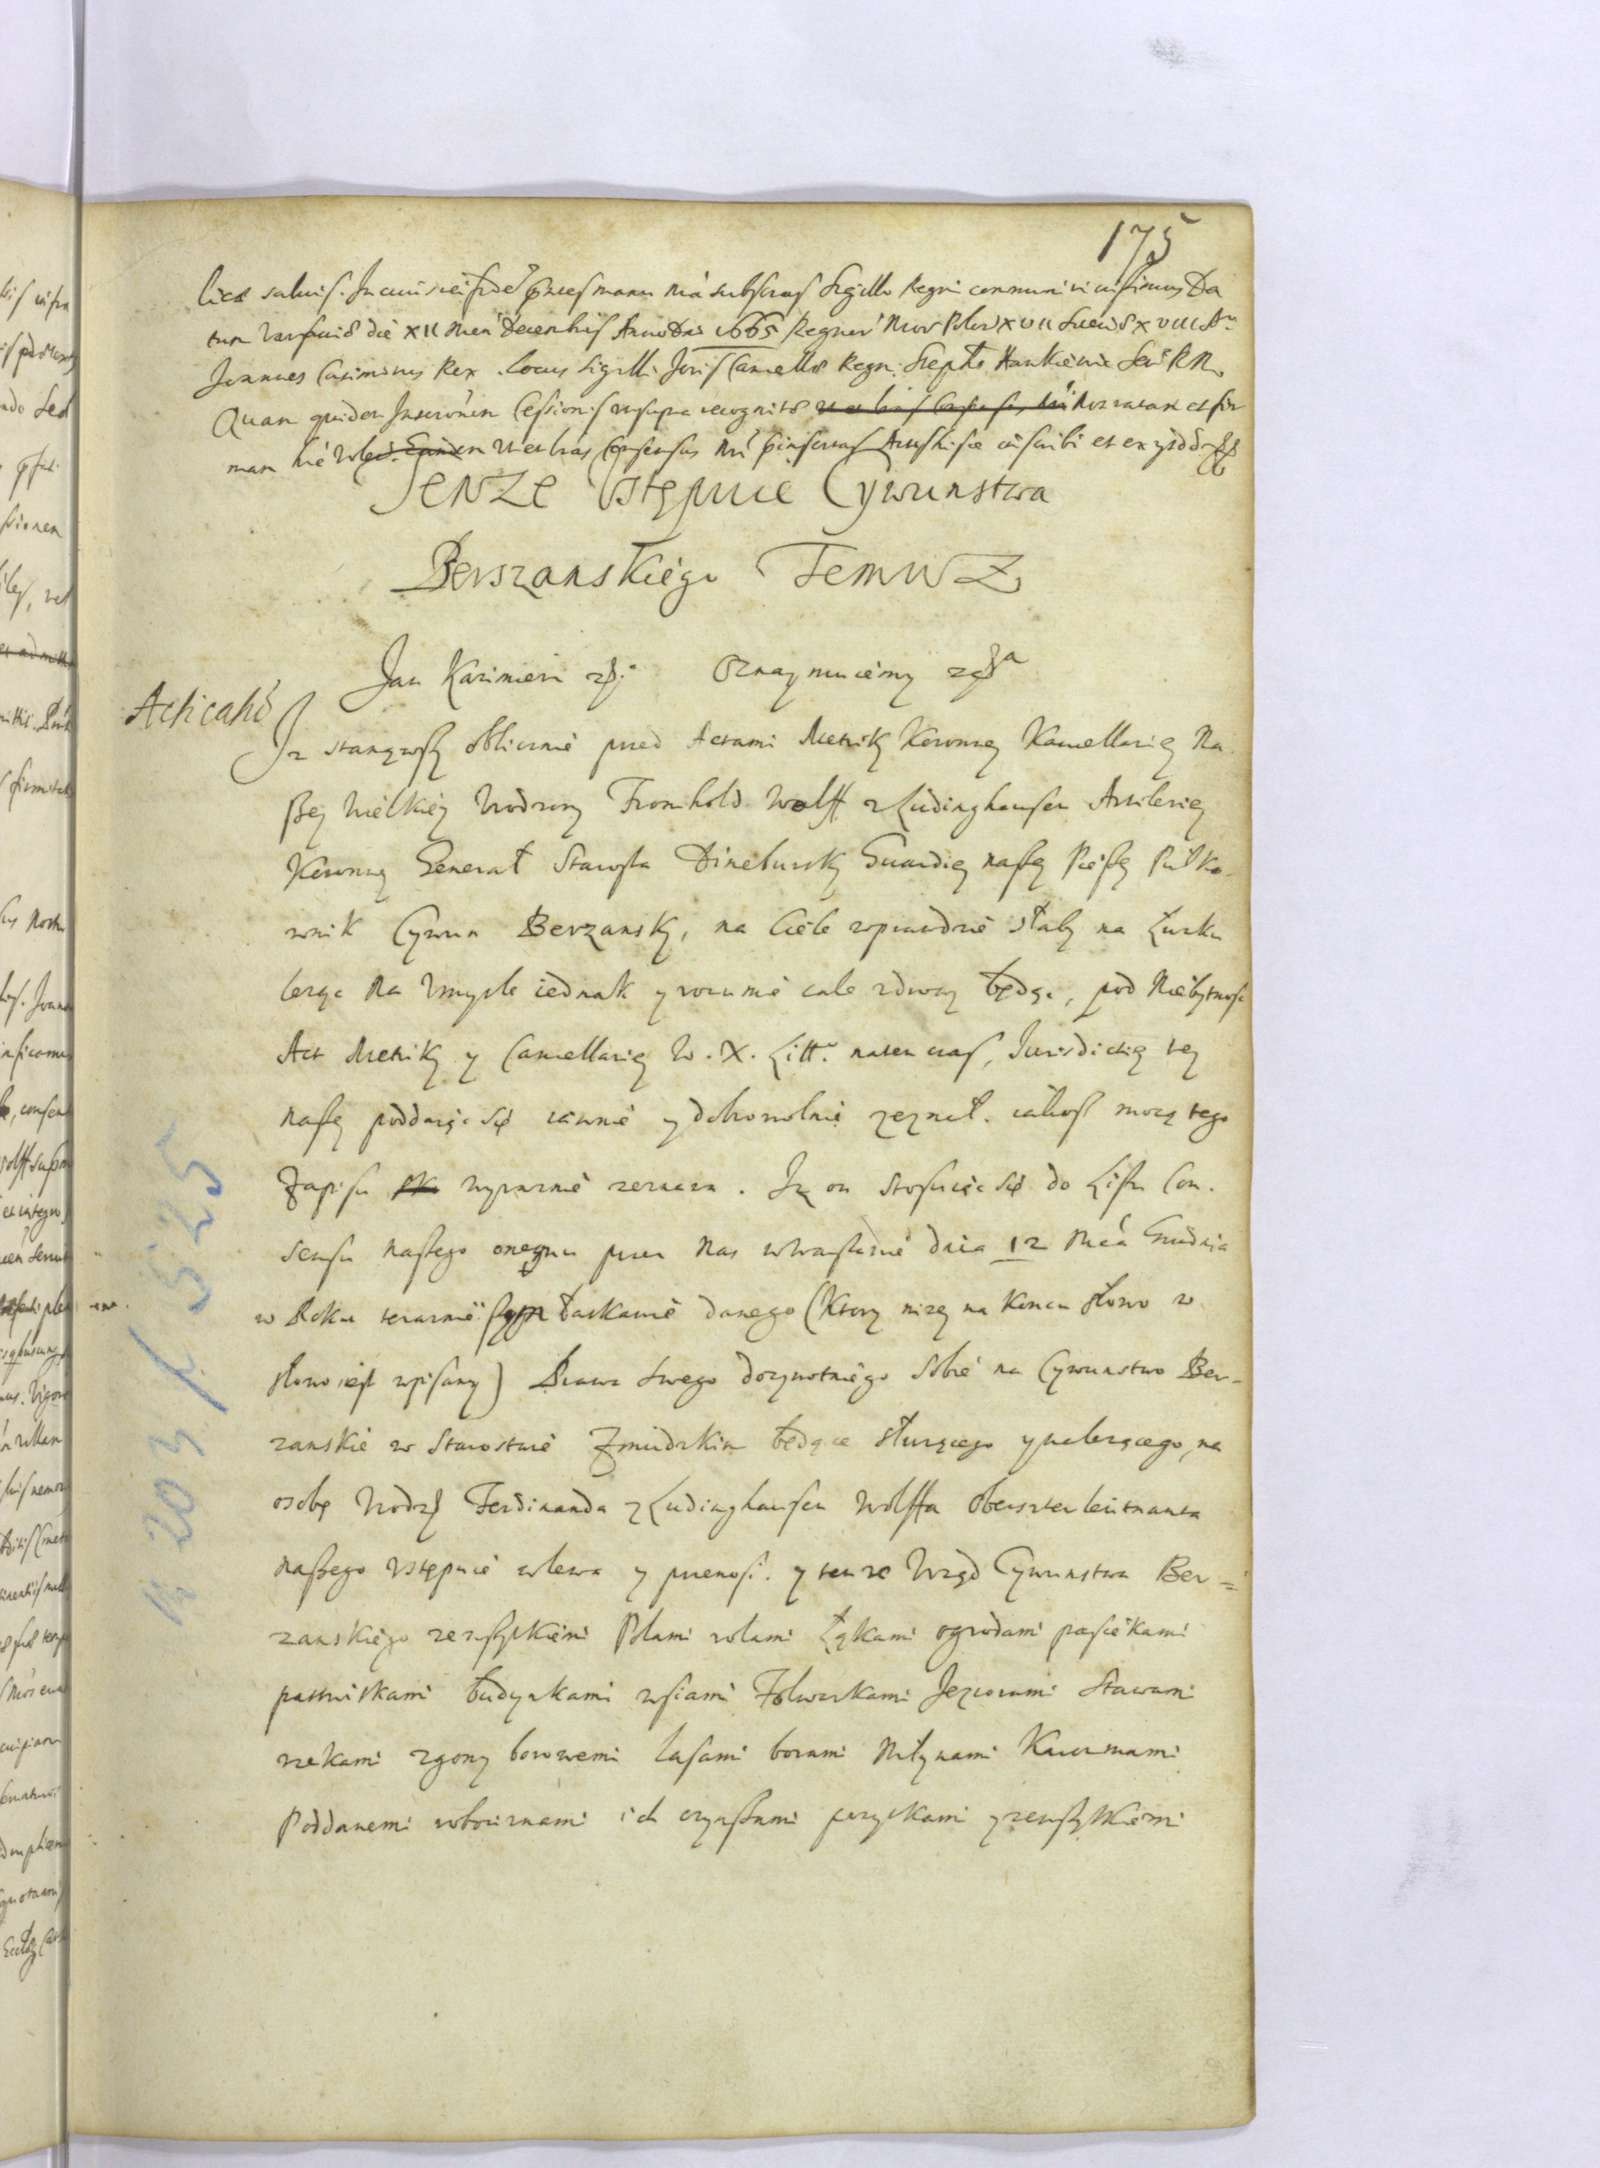 175
lica saluis. In cuius rei fidē p̃ntes manu Nrā subscrās Sigillo Regni communiri iussimus Da
tum Varsauiæ die XII Men Decembris Anno Dni 1665 Regnor Nror Polon XVII Sueciæ XVIII Ao
Joannes Casimirus Rex. Locus Sigilli Joris Cancellæ Regni. Stepha Hankiewic Secr R M.
Quam quidem Inscronem Cessionis ut supra recognitæ ratam et fir
mam ut et hras Consensus Nri inscribi et
TENZE Ustępuie Cywunstwa
Berszanskiego TemuZ
Jan Kazimierz Oznaymuiemy
Acticatio
Iz stanąwszy oblicznie przed Actami Metriky Koronney Kancellariey Na
szey Wielkiey Urodzony Fromhold Wolff z Ludinghausen Artileriey
Koronney Generał Starosta Dineburský Guardiey naszey Pieszey Pułko-
wnik Cywun Berzansky, na Ciele wprawdzie słaby na Łużku
leząc Na Umysle iednak y rozumie cale zdrowy będąc, pod Niebytnosc
Act Metriky y Cancellariey W. X. Litt. naten czas, Jurisdictiey tey
naszey poddaiąc się iawnie y dobrowolnie zeznał. iakosz mocą tego
Zapisu wyraznie zeznawa. Iz on stosuiąc się do Listu Con-
sensu naszego onemu przez Nas w Warszawie dnia 12 Mca Grudnia
w Roku teraznieyszym łaskawie danego (Ktory nizey na Koncu słowo w
słowo iest wpisany) Prawa swego dozywotniego sobie na Cywunstwo Ber-
zanskie w Starostwie Zmudzkim będące słuzącego y nalezącego, na
osobę Urodz Ferdinanda z Ludinghausen Wolffa Obersterleutnanta
naszego ustępuie wlewa y przenosi. y tenze Urząd Cywunstwa Ber=
zanskiego ze wszytkiemi Polami rolami Łąkami ogrodami pasiekami
pastwiskami budynkami wsiami Folwarkami Jeziorami Stawami
rzekami zgony borowemi lasami borami Młynami Karczmami
Poddanemi robociznami ich czynszami pozytkami y ze wszytkiemi